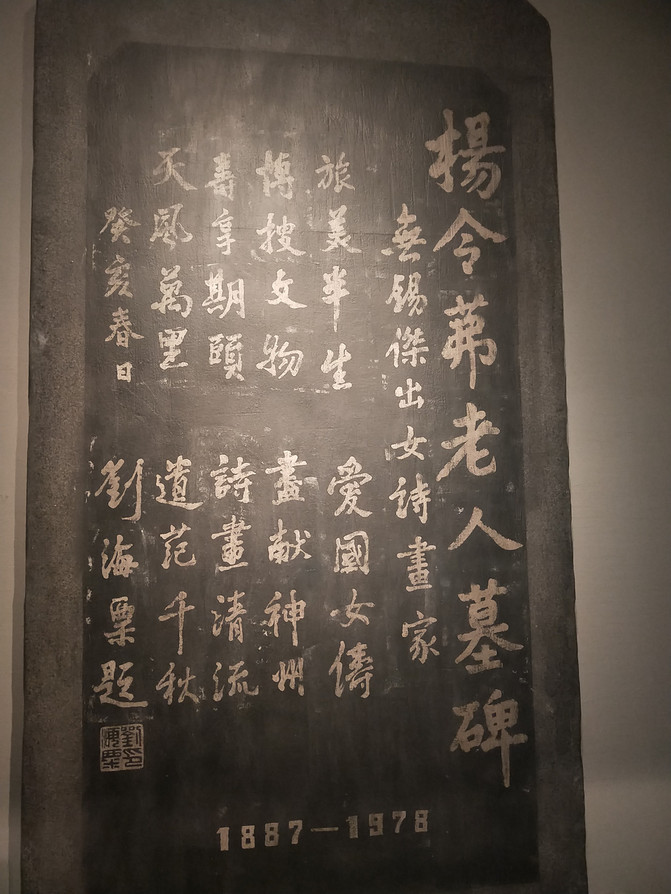 楊令茀老人墓碑
無錫傑出女诗畫家
旅美半生 愛國女儔
博搜文物 盡献神州
壽享期頤 詩畫清流
天風萬里 遺范千秋
癸亥春日 劉海粟題
劉海粟印
1887—1978